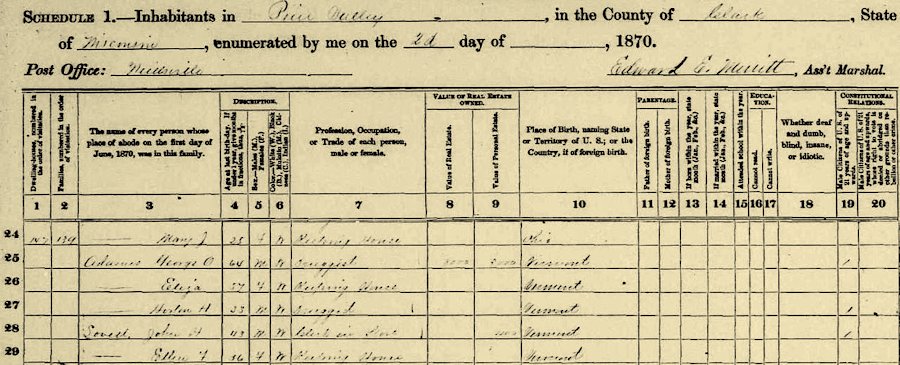 SCHEDULE 1.—Inhabitants in Pine Valley, in the County of Clark, State
of Wisconsin, enumerated by me on the 2d day of , 1870.
Post Office: Neillsville Edward E. Merritt, Ass't Marshal.
Dwelling-houses, numbered in the order of visitation.
Families, numbered in the order of visitation.
The name of every person whose place of abode on the first day of June, 1870, was in this family.
DESCRIPTION.
Age at last birth-day. If under 1 year, give months in fractions, thus,
Sex.—Males (M.), Females (F.)
Color.—White (W.), Black (B.), Mulatto (M.), Chinese (C.), Indian (I.)
Profession, Occupation, or Trade of each person, male or female.
VALUE OF REAL ESTATE OWNED.
Value of Real Estate.
Value of Personal Estate.
Place of Birth, naming State or Territory of U. S.; or the Country, if of foreign birth.
PARENTAGE.
Father of foreign birth.
Mother of foreign birth.
If born within the year, state month (Jan., Feb., &c.)
If married within the year, state month (Jan., Feb., &c.)
EDUCATION.
Attended school within the year.
Cannot read.
Cannot write.
Whether deaf and dumb, blind, insane, or idiotic.
CONSTITUTIONAL RELATIONS.
Male Citizens of U. S. of 21 years of age and upwards.
1 2 3 4 5 6 7 8 9 10 11 12 13 14 15 16 17 18 19 20
24 —— Mary J 25 F W Keeping House Ohio
25 Adams George O 64 M W Druggist Vermont 1
26 —— Eliza 57 F W Keeping House Vermont
27 —— H 33 M W Druggist Vermont 1
28 John H 43 M W Clerk in Store Vermont 1
29 —— Ellen F 36 F W Keeping House Vermont